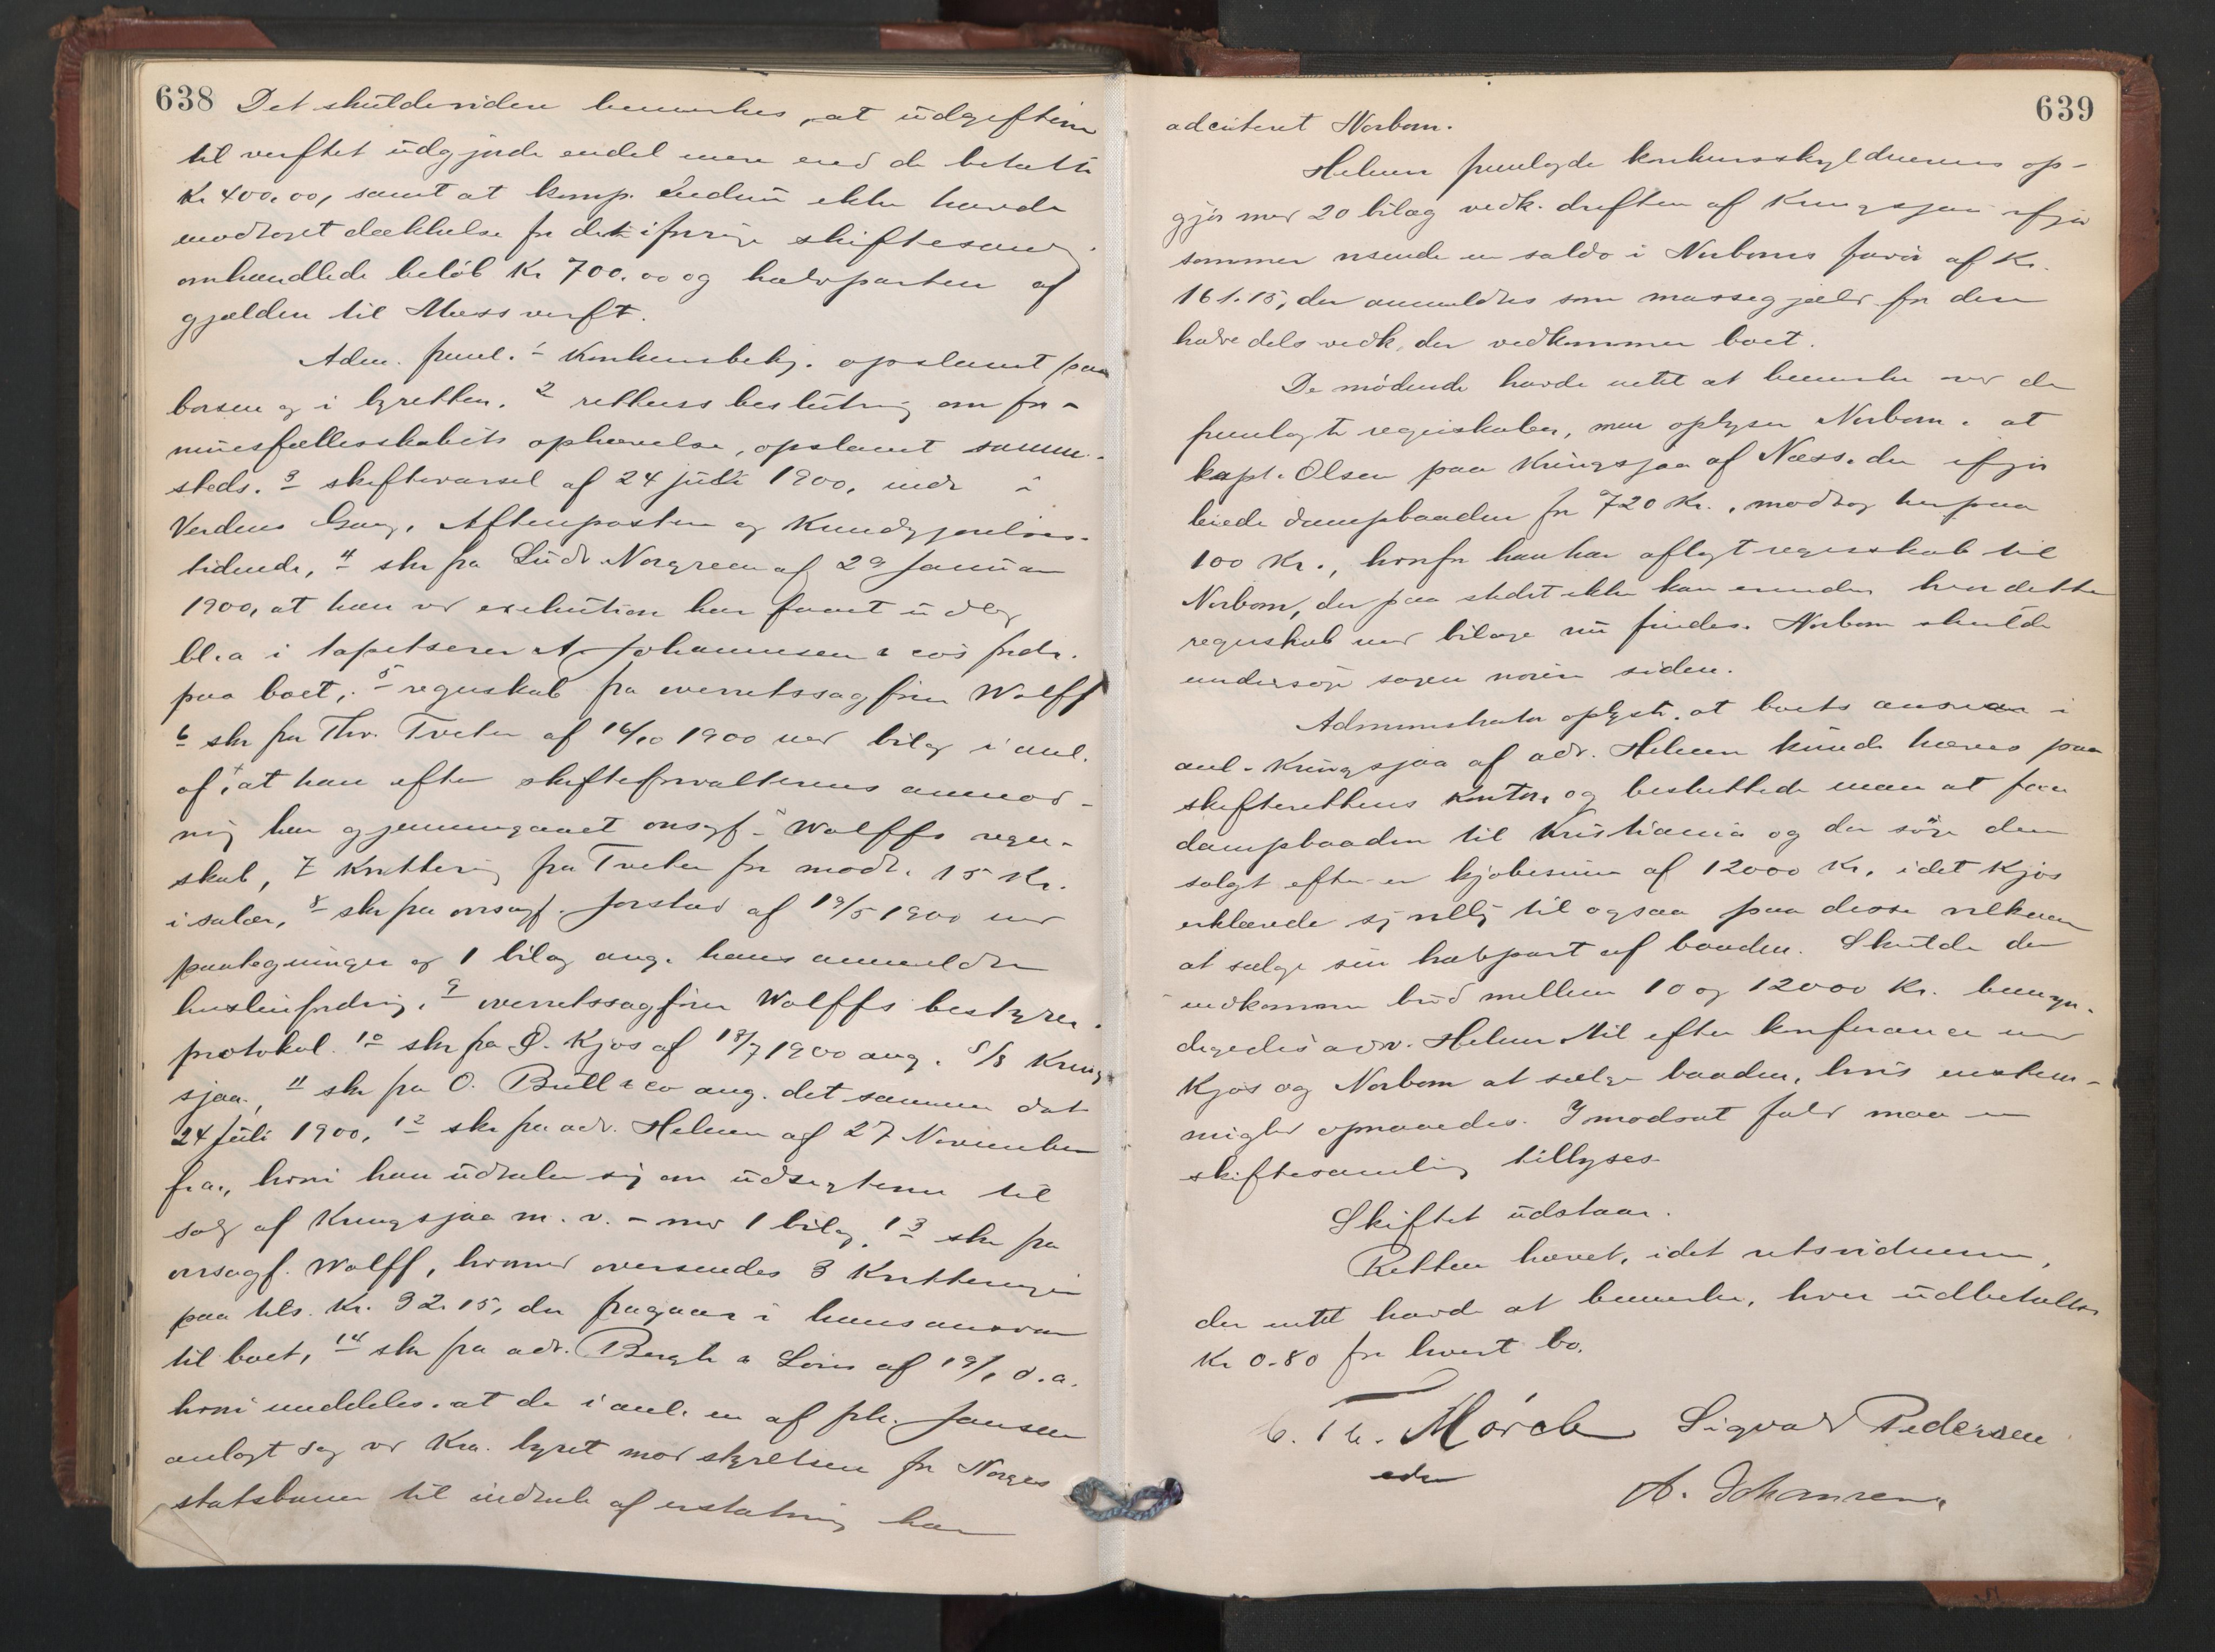 638
Det skulde videre bemærkes, at udgifterne
til verftet udgjorde endel mere end de betalte
Kr 400.00, samt at komp. endnu ikke havde
modtaget dækkelse for det i forrige skiftesaml.
omhandlede beløb Kr 700.00 og halvparten af
gjælden til Moss verft.
Adm. freml. 1 Konkursbekj. opslaaet paa
børsen og i byretten. 2 rettens beslutning om for-
muesfællesskabets ophævelse, opslaaet samme-
steds. 3 skiftevarsel af 24 juli 1900, indr i
Verdens Gang, Aftenposten og Kundgjørelses-
tidende, 4 skr fra Ludv Norgreen af 29 Januar
1900, at han ved exekution har faaet udlæg
bl.a i tapetserer A. Johannesen & cos fordr.
paa boet, 5 regnskab fra overretssagfører Wolff
6 skr fra Thv. Tveter af 16/10 1900 med bilag i anl.
af, at han efter skifteforvalterens anmod-
ning har gjennemgaaet orsagf. Wolffs regn-
skab, 7 Kvittering fra Tveter for modt. 15 Kr.
i salær, 8 skr fra orsagf. Jorstad af 19/5 1900 med
paategninger og 1 bilag ang. hans anmeldte
husleiefordring, 9 overretssagfører Wolffs bestyrer-
protokol. 10 skr fra P. Kjøs af 18/7 1900 ang. S/S Kring-
sjaa, 11 skr fra O. Bull & co ang. det samme dat
24 Juli 1900, 12 skr fra adv. Helmer af 27 November
f.a., hvori han udtaler sig om udsigterne til
salg af Kringsjaa m. v. – med 1 bilag, 13 skr fra
orsagf. Wolff, hvormed oversendes 3 Kvitteringer
paa tils. Kr. 92.15, der fragaar i hans ansvar
til boet, 14 skr fra adv. Bergh & Lous af 19/1 d.a.
hvori meddeles, at de i anl. en af frk. Jansen
anlagt sag ved Kra. byret mod styrelsen for Norges
statsbaner til indtale af erstatning har
639
adciteret Norbom.
Helmer fremlagde konkursskyldnerens op-
gjør med 20 bilag vedk. driften af Kringsjaa ifjor
sommer visende en saldo i Norboms favør af Kr.
161.15, der anmeldtes som massegjæld for den
halve dels vedk. der vedkommer boet.
De mødende havde intet at bemærke ved de
fremlagte regnskaber, men oplyser Norbom, at
kapt. Olsen paa Kringsjaa af Næss, der ifjor
leiede dampbaaden for 720 Kr., modtog herpaa
100 Kr., hvorfor han har aflagt regnskab til
Norbom, der paa stedet ikke kan erindre hvor dette
regnskab med bilage nu findes. Norbom skulde
undersøge sagen nøiere siden.
Administrator oplyste, at boets ansvar i
anl. Kringsjaa af adv. Helmer kunde hæves paa
skifterettens kontor, og besluttede man at faa
dampbaaden til Kristiania og der søge den
solgt efter en kjøbesum af 12000 Kr, idet Kjøs
erklærede sig villig til ogsaa paa disse vilkaar
at sælge sin halvpart af baaden. Skulde der
indkomme bud mellem 10 og 12000 Kr. bemyn-
digedes adv. Helmer til efter konferance med
Kjøs og Norbom at sælge baaden, hvis enstem-
mighed opnaaedes. I modsat fald maa en
skiftesamling tillyses.
Skiftet udstaar.
Retten hævet, idet retsvidnerne,
der intet havde at bemærke, hver udbetaltes
Kr 0.80 for hvert bo.
C. Th. Mørch Sigvard Pedersen
edsv
A. Johansen